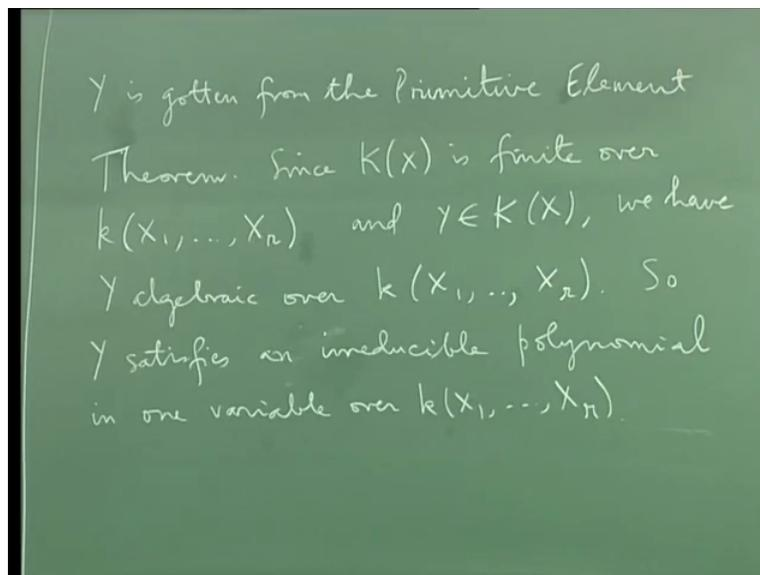 Y is gotten from the Primitive Element
Theorem. Since K(X) is finite over
k(X₁,...,Xᵣ) and y ∈ K(X), we have
Y algebraic over k(X₁,..,Xᵣ). So
Y satisfies an irreducible polynomial
in one variable over k(X₁,...,Xᵣ).